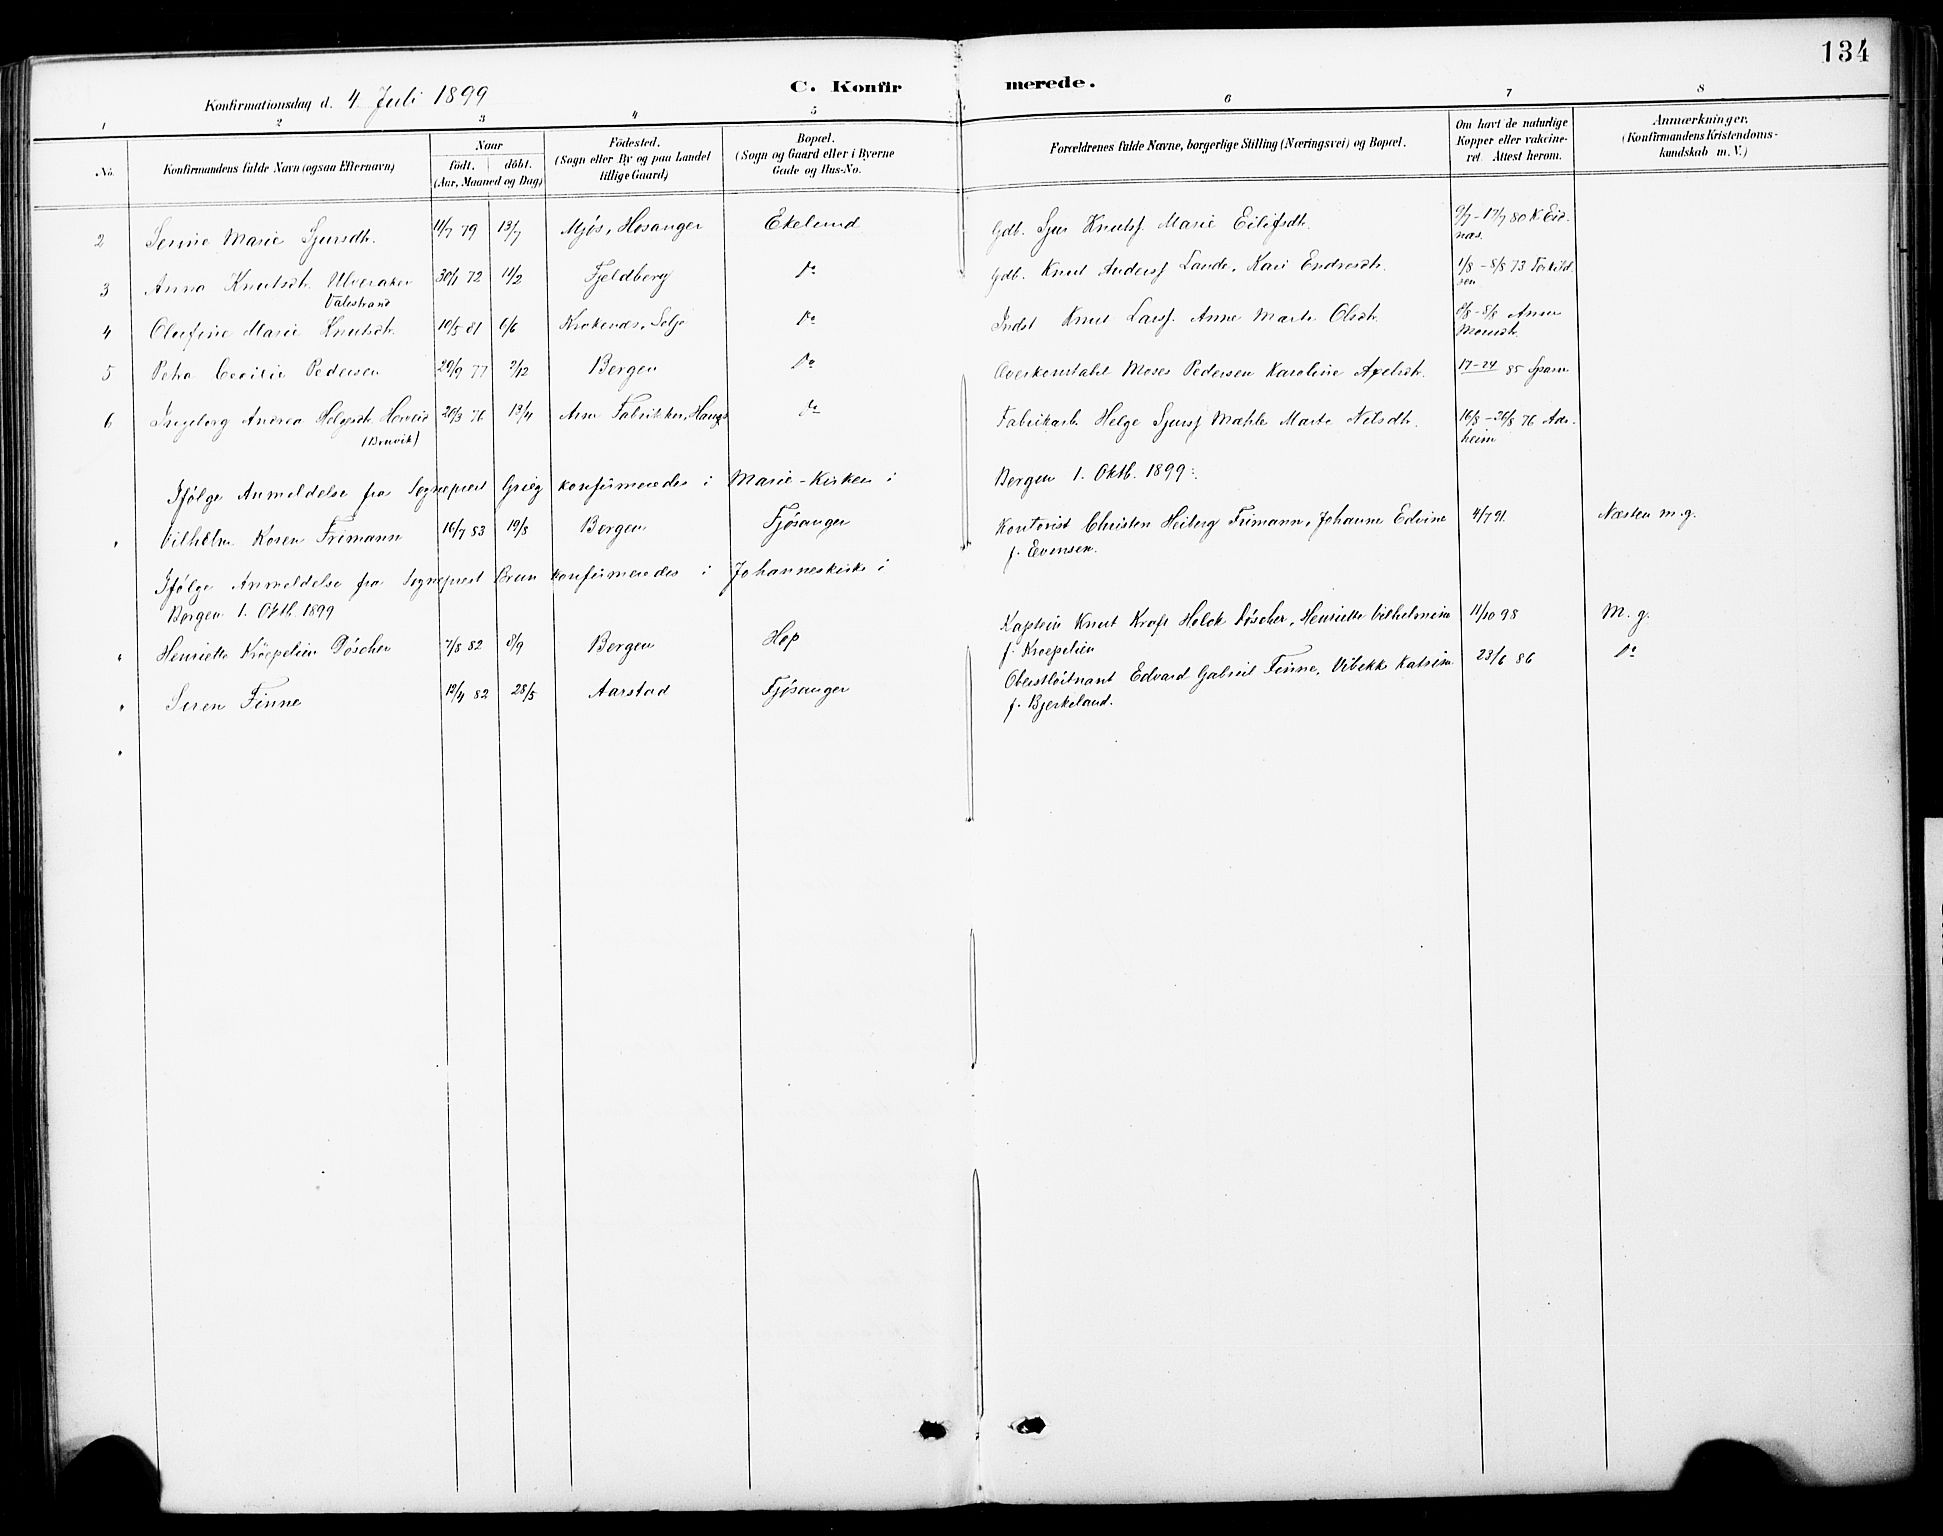 134
C. Konfirmerede.
Konfirmationsdag d. 4 Juli 1899
1 2 3 4 5 6 7 8
No. Konfirmandens fulde Navn (ogsaa Efternavn) Naar født. døbt. (Aar, Maaned og Dag) Fødested. (Sogn eller By og paa Landet tillige Gaard) Bopæl. (Sogn og Gaard eller i Byerne Gade og Hus-No. Forældrenes fulde Navne, borgerlige Stilling (Næringsvei) og Bopæl. Om havt de naturlige Kopper eller vakcineret. Attest herom. Anmærkninger. (Konfirmandens Kristendomskundskab m.V.)
2 Serine Marie Sjursdtr. 11/7 79 13/7 Mjøs, Hosanger Ekelund Gdb. Sjur Knutsf Marie Eilifsdtr. 9/7 - 17/7 80 K Eidnæs.
3 Anna Knutsdtr. Ulveraker 30/1 72 11/2 Fjeldberg Do Gdb. Knut Andersf Lande, Kari Endresdtr. 1/8 - 8/8 73 Torkildsen
Valestrand
4 Olufine Marie Knutsdtr. 10/5 81 6/6 Krokenes, Selje Do Indst Knut Larsf. Anne Marte Olsdtr. 8/8 Anna Monsdtr.
5 Petra Cecilie Pedersen 20/9 77 2/12 Bergen Do Overkonstabel Moses Pedersen Karoline Axelsdtr. 17-24 85 Sparn
6 Ingeborg Andrea Helgesdtr. 20/3 76 13/4 Arne Fabrikker, Haus Do Fabrikarb. Helge Sjursf Mæhle Marte Nilsdtr. 16/8 - 26/8 76 Adsheim
(Bruvik)
Ifølge Anmeldelse fra Sognepræst Grieg konfirmeredes i Marie-Kirken i Bergen 1. Oktb. 1899:
" Vilhelm Koren Frimann 16/7 83 19/8 Bergen Fjøsanger Kontorist Christen Heiberg Frimann, Johanne Edvine 4/7 91. Næsten m.g.
f. Evensen.
Ifølge Anmeldelse fra Sognepræst Brun konfirmeredes i Johanneskirke i
Bergen 1. Oktb. 1899
" Henriette Krøepelien Døscher 7/8 82 8/9 Bergen Hop Kaptein Knut Kraft Holck Døscher, Henriette Vilhelmine 11/10 98 M. g.
f. Kroepelien
" Søren Finne 12/4 82 28/5 Aarstad Fjøsanger Oberstløitnant Edvard Gabriel Finne, Vibekke Katrine 23/6 86 Do
f. Bjerkeland.
"